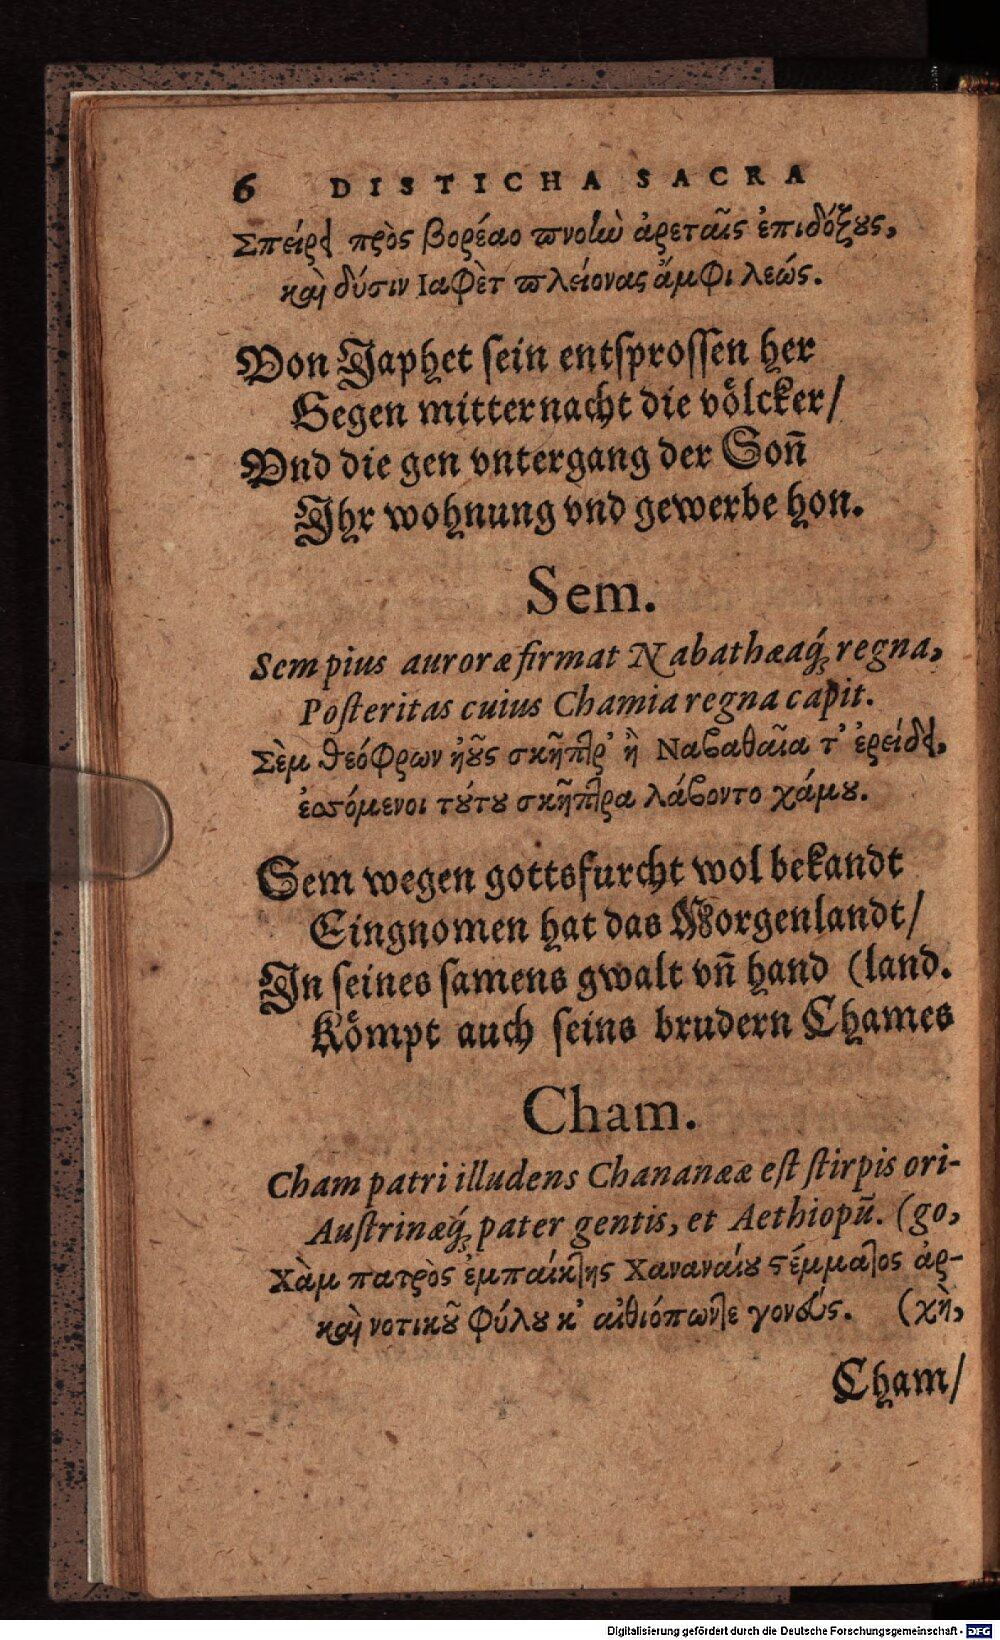 6 DISTICHA SACRA
Σπείρει πρὸς βορέαο πνοὴν ἀρεταῖς ἐπιδόξους,
καὶ δύσιν Ιαφὲτ πλείονας ἄμφι λεώς.
Von Japhet sein entsprossen her
Gegen mitternacht die völcker/
Vnd die gen vntergang der Soñ
Ihr wohnung vnd gewerbe hon.
Sem.
Sem pius auroræ firmat Nabathæaq́; regna,
Posteritas cuius Chamia regna capit.
Σὲμ θεόφρων ἠοῦς σκῆπτρ' ἢ Ναβαθαῖα τ' ἐρείδει,
ἑσπόμενοι τούτου σκῆπτρα λάβοντο χάμου.
Sem wegen gottsfurcht wol bekandt
Eingnomen hat das Morgenlandt/
In seines samens gwalt vñ hand (land.
Kömpt auch seins brudern Chames
Cham.
Cham patri illudens Chananææ est stirpis ori-
Austrinæq́; pater gentis, et Aethiopū. (go,
Χὰμ πατρὸς ἐμπαίκτης Χαναναίου στέμματος ἀρ-
καὶ νοτικοῦ φύλου κ' αἰθιόπωντε γονεύς. (χὴ,
Cham/
Digitalisierung gefördert durch die Deutsche Forschungsgemeinschaft - DFG